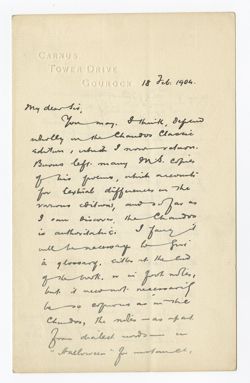 CARNUS,
TOWER DRIVE
GOUROCK
18 Feb. 1904.
My dear Sir,
You may, I think, depend
wholly on the Chandos Classic
Edition, which I now return.
Burns left many MS. copies
of his poems, which accounts
for textual differences in the
various editions, and so far as
I can discover, the Chandos
is authoritative. I fancy it
will be necessary to give
a glossary, either at the end
of the book, or in foot notes,
but it need not necessarily
be so copious as in the
Chandos, the notes — as apart
from dialect words — in
"Halloween" for instance,